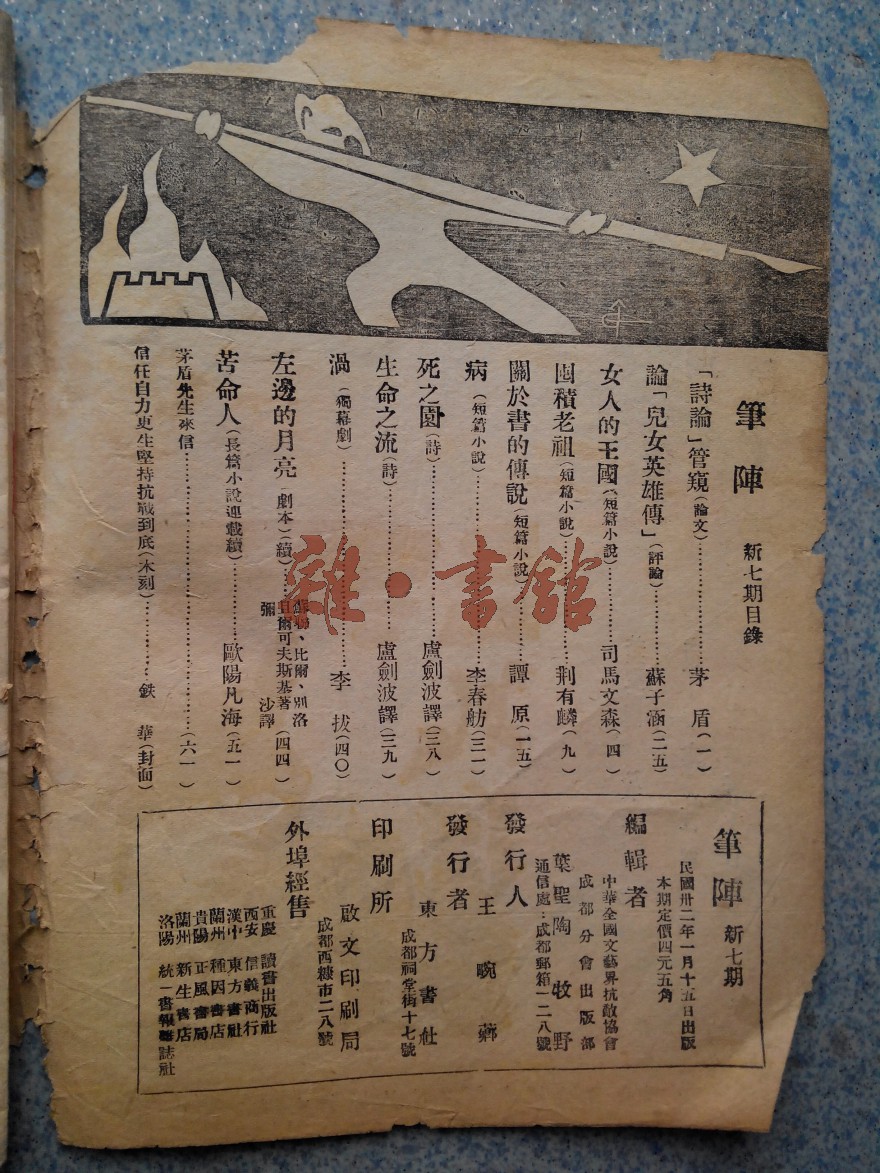 筆陣 新七期目錄
「詩論」管窺(論文)……茅盾(一)
論「兒女英雄傳」(評論)……蘇子涵(二五)
女人的王國(短篇小說)……司馬文森(四)
囤積老祖(短篇小說)……荆有麟(九)
關於書的傳說(短篇小說)……譚原(一五)
病(短篇小說)……李春舫(三一)
死之園(詩)……盧劍波譯(三八)
生命之流(詩)……盧劍波譯(三九)
渦(獨幕劇)……李拔(四〇)
左邊的月亮(劇本)(續)……比爾、別洛
爾可夫斯基著
彌沙譯(四四)
苦命人(長篇小說連載續)……歐陽凡海(五一)
茅盾先生來信……(六一)
信任自力更生堅持抗戰到底(木刻)……鉄華(封面)
筆陣 新七期
民國卅二年一月十五日出版
本期定價四元五角
編輯者
中華全國文藝界抗敵協會
成都分會出版部
葉聖陶 牧野
通信處:成都郵箱一二八號
發行人
王畹薌
發行者
東方書社
成都祠堂街十七號
印刷所
啟文印刷局
成都西糠市二八號
外埠經售
重慶 讀書出版社
西安 信義商行
漢中 東方書社
蘭州 種因書店
貴陽 正風書局
蘭州 新生書店
洛陽 統一書報雜誌社
雜·書館